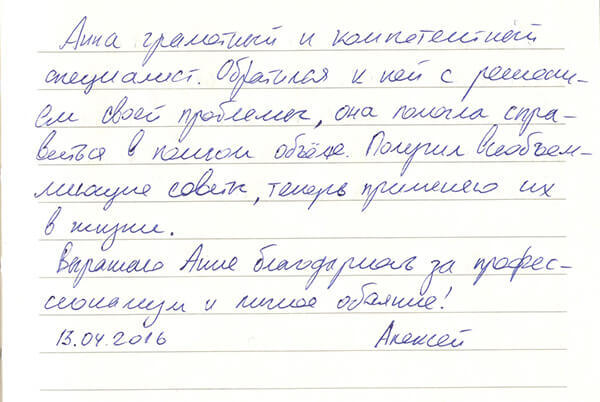 Анна грамотный и компетентный
специалист. Обратился к ней с решени-
ем своей проблемы, она помогла спра-
виться в полном объёме. Получил всеобъем-
лющие советы, теперь применяю их
в жизни.
Выражаю Анне благодарность за профес-
сионализм и личное обаяние!
13.04.2016 Алексей